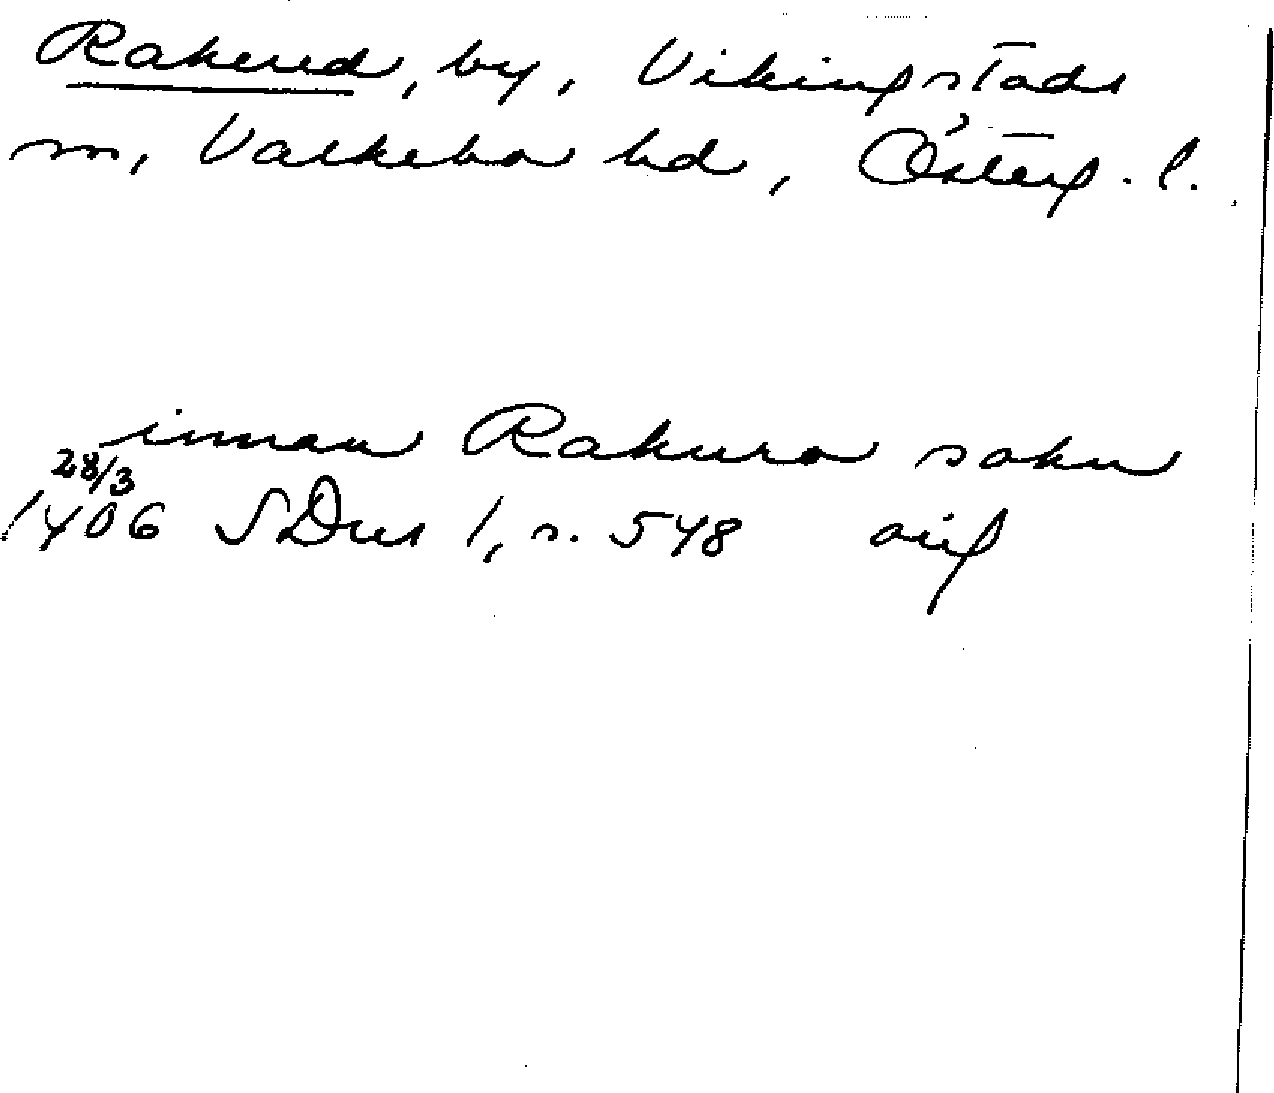 Rakered, by, Vikingstads
sn, Valkebo hd, Österg. l.
innan Rakura sokn
28/3
1406 SDns 1, s. 548 orig